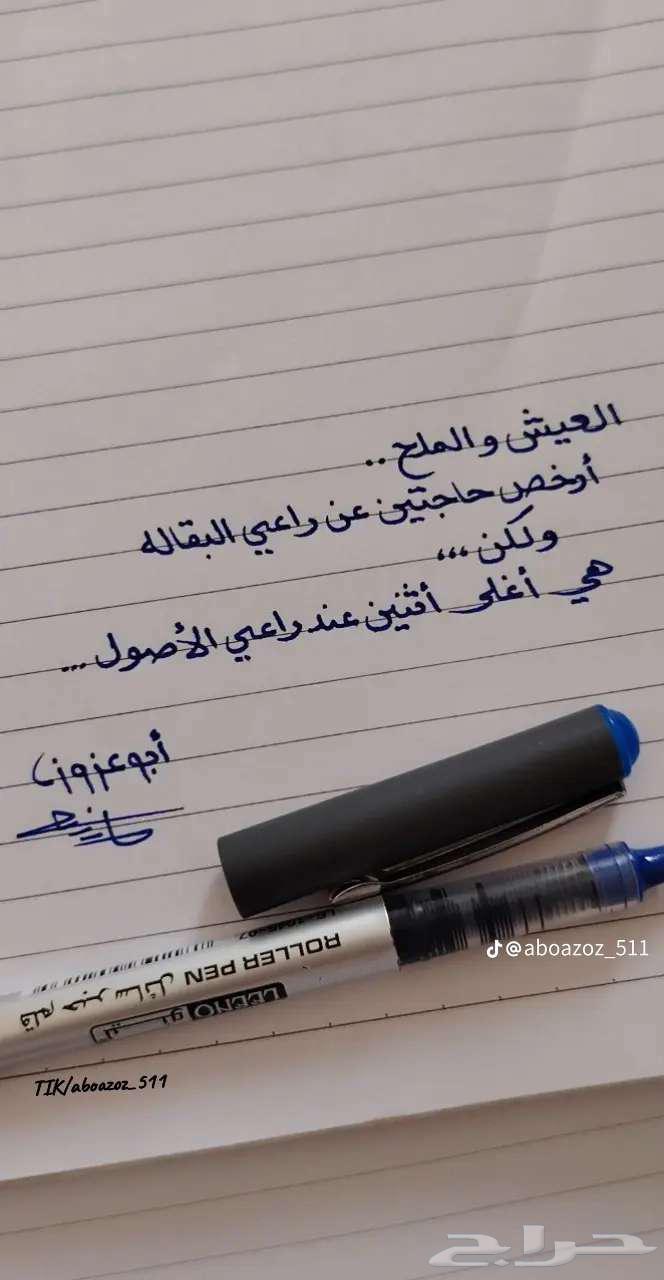 العيش والملح ..
أرخص حاجتين عن راعي البقاله
ولكن ،،،
هي أغلى أثنين عند راعي الأصول ...
أبو عزوز
LE-1045-07
ROLLER PEN قلم حبر سائل
TIK/aboazoz_511
@aboazoz_511
حراج